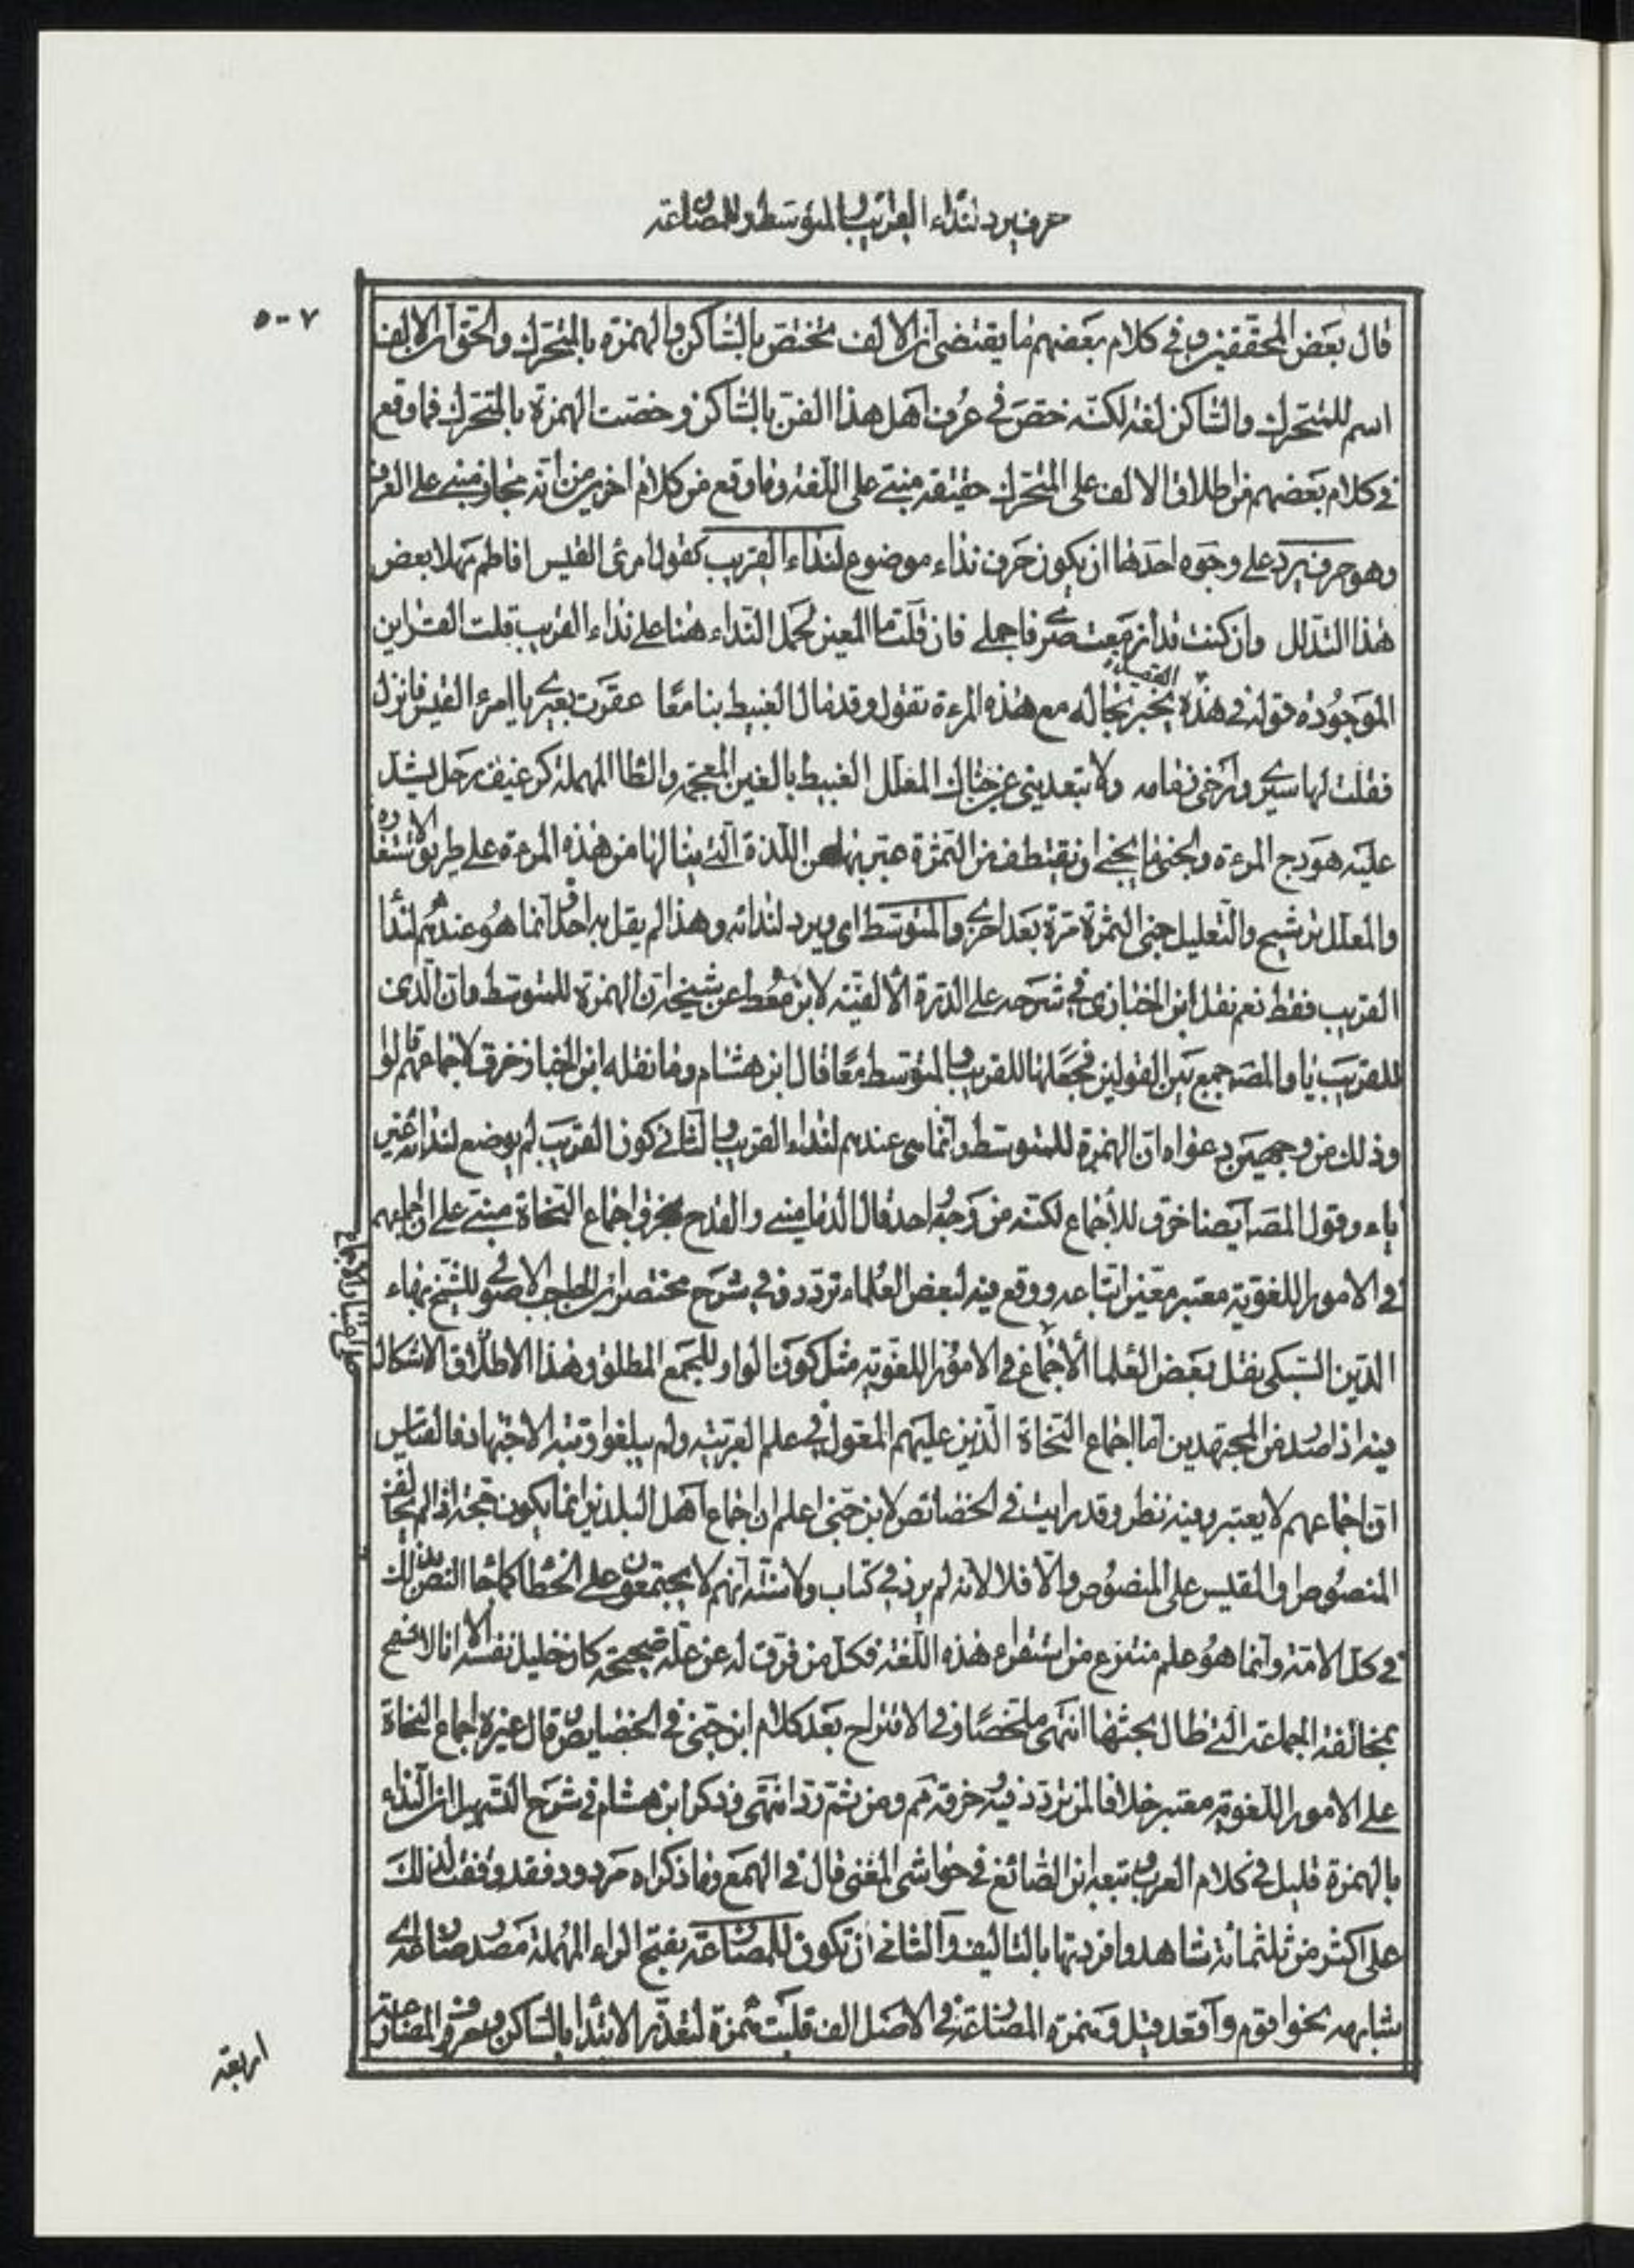 حرف يرد لنداء القريب والمتوسط وللمضارعة
٥٠٧
قال بعض المحققين وفي كلام بعضهم ما يقتضي ان الالف مختص بالساكن والهمزة بالمتحرك والحق ان الالف
اسم للمتحرك والساكن لغة لكنه خص في عرف اهل هذا الفن بالساكن وخصت الهمزة بالمتحرك فما وقع
في كلام بعضهم من اطلاق الالف على المتحرك حقيقة مبني على اللغة وما وقع من كلام اخرين من انه مجاز مبني على العرف
وهو حرف يرد على وجوه احدها ان يكون حرف نداء موضوع لنداء القريب كقول امرئ القيس افاطم مهلا بعض
هذا التدلل وان كنت قد ازمعت صرمي فاجملي فان قلت ما المعين لحمل النداء هنا على نداء القريب قلت القراين
الموجوده قوله في هذه القصيدة يخبر بحاله مع هذه المرءة تقول وقد مال الغبيط بنا معا عقرت بعيري يا امرء القيس فانزل
فقلت لها سيري وارخي زمامه ولا تبعديني عن جناك المعلل الغبيط بالغين المعجمه والطا المهملة كرغيف رحل يشد
عليه هودج المرءة والجنى ما يجنى اي يقتطف من الثمرة عبر بها عن اللذة التي ينالها من هذه المرءة على طريق الاستعاره
والمعلل ترشيح والتعليل جني الثمرة مرة بعد اخرى والمتوسط اي ويرد لندائه وهذا لم يقل به احد انما هو عندهم لندا
القريب فقط نعم نقل ابن الخبازى في شرحه على الدرة الالفية لابن معط عن شيخه ان الهمزة للمتوسط وان الذي
للقريب يا والمصه جمع بين القولين فجعلها للقريب والمتوسط معا قال ابن هشام وما نقله ابن الخباز خرق لاجماعهم قالوا
وذلك من وجهين دعواه ان الهمزة للمتوسط وانما هي عندهم لنداء القريب والثاني كون القريب لم يوضع لندائه غير
ياء وقول المصه ايضا خرق للاجماع لكنه من وجه واحد قال الدماميني والقدح بخرق اجماع النحاة مبني على ان اجماعهم
في الامور اللغوية معتبر معين اتباعه ووقع فيه لبعض العلماء تردد ففي شرح مختصر ابن الحاجب الاصولي للشيخ بهاء
الدين السبكي نقل بعض العلما الاجماع في الامور اللغويه مثل كون الواو للجمع المطلق وهذا الاطلاق لا اشكال
فيه اذا صدر من المجتهدين اما اجماع النحاة الذين عليهم المعول في علم العربية ولم يبلغوا رتبة الاجتهاد فالقياس
ان اجماعهم لا يعتبر وفيه نظر وقد رايت في الخصائص لابن جني اعلم ان اجماع اهل البلدين انما يكون حجة اذا لم يخالف
المنصوص او المقيس على المنصوص والا فلا لانه لم يرد في كتاب ولا سنة انهم لا يجتمعون على الخطا كما جا النص بذلك
في كل الامة وانما هو علم منتزع من استقراء هذه اللغة فكل من فرقت له عن علة صحيحه كان خليل نفسه الا انا لا نفسح
بمخالفة الجماعة التي طال بحثها انتهى ملخصا وفي الاقتراح بعد كلام ابن جني في الخصايص قال غيره اجماع النحاة
على الامور اللغويه معتبر خلافا لمن تردد فيه وخرقه مم ومن ثم رد انتهى وذكر ابن هشام في شرح التسهيل ان النداء
بالهمزة قليل في كلام العرب وتبعه ابن الصائغ في حواشي المغني قال في الهمع وما ذكراه مردود فقد وقفت لذلك
على اكثر من ثلثمائة شاهد وافردتها بالتاليف والثاني ان تكون للمضارعة بفتح الراء المهملة مصدر ضارعه اي
شابهه نحو اقوم واقعد قيل وهمزة المضارعة في الاصل الف قلبت همزة لتعذر الابتدا بالساكن وحروف المضارعة
اربعة